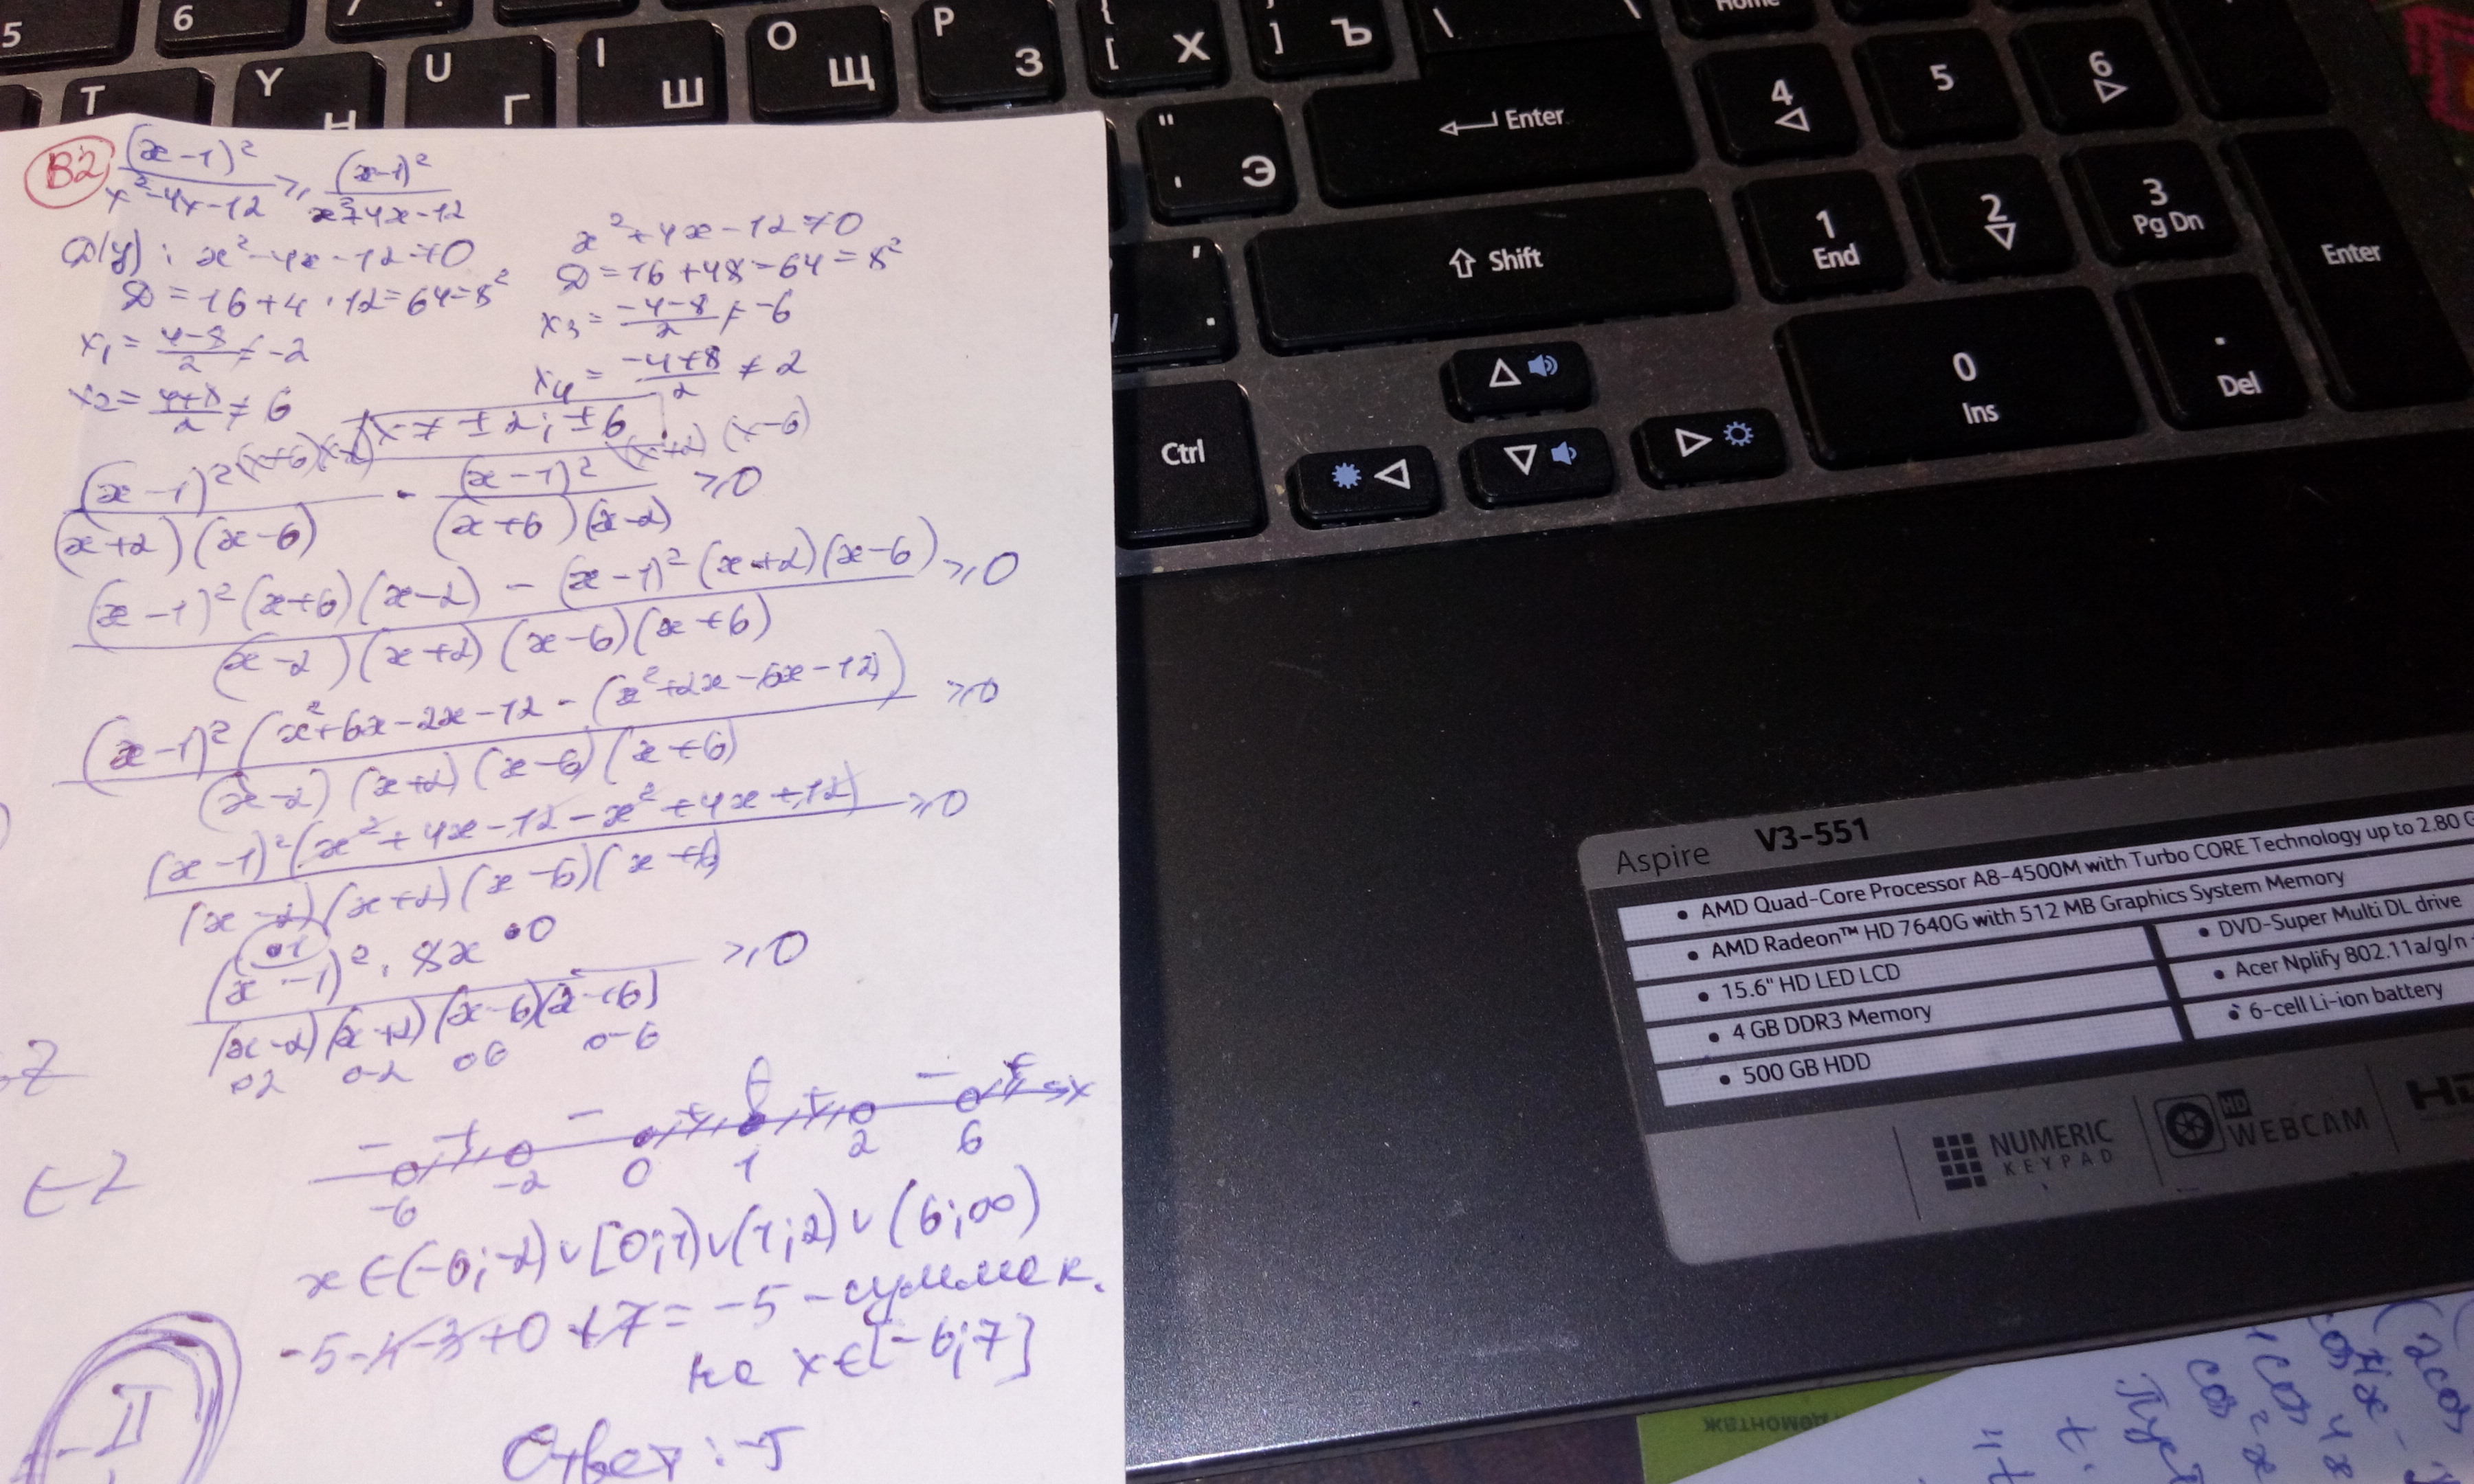 5 6 7
T Y Н U Г I Ш O Щ P З { [ Х } ] Ъ \ Home
" ' Э Enter 4 5 6
Shift 1 End 2 3 Pg Dn Enter
Ctrl 0 Ins . Del
B2 (x-1)² / x²-4x-12 ≥ (x-1)² / x²+4x-12
D(y): x²-4x-12≠0
D=16+4·12=64=8²
x₁= 4-8 / 2 ≠ -2
x₂= 4+8 / 2 ≠ 6
x²+4x-12≠0
D=16+48=64=8²
x₃= -4-8 / 2 ≠ -6
x₄= -4+8 / 2 ≠ 2
x≠±2; ±6
(x-1)² (x+6)(x-2) / (x+2)(x-6) - (x-1)² (x+2)(x-6) / (x+6)(x-2) ≥0
(x-1)²(x+6)(x-2) - (x-1)²(x+2)(x-6) / (x-2)(x+2)(x-6)(x+6) ≥0
(x-1)²(x²+6x-2x-12-(x²+2x-6x-12) / (x-2)(x+2)(x-6)(x+6) ≥0
(x-1)²(x²+4x-12-x²+4x+12) / (x-2)(x+2)(x-6)(x+6) ≥0
•1 •0
(x-1)²·8x / (x-2)(x+2)(x-6)(x+6) ≥0
∘2 ∘-2 ∘6 ∘-6
- + - + + - + x
-6 -2 0 1 2 6
x∈(-6;-2)∨[0;1)∨(1;2)∨(6;∞)
-5-4-3+0+7=-5-сумма к.
на x∈[-6;7]
Ответ: -5
Aspire V3-551
• AMD Quad-Core Processor A8-4500M with Turbo CORE Technology up to 2.80 G
• AMD Radeon™ HD 7640G with 512 MB Graphics System Memory
• 15.6" HD LED LCD
• 4 GB DDR3 Memory
• 500 GB HDD
• DVD-Super Multi DL drive
• Acer Nplify 802.11a/g/n
• 6-cell Li-ion battery
NUMERIC
KEYPAD
HD
WEBCAM
ДОМОНТАЖ